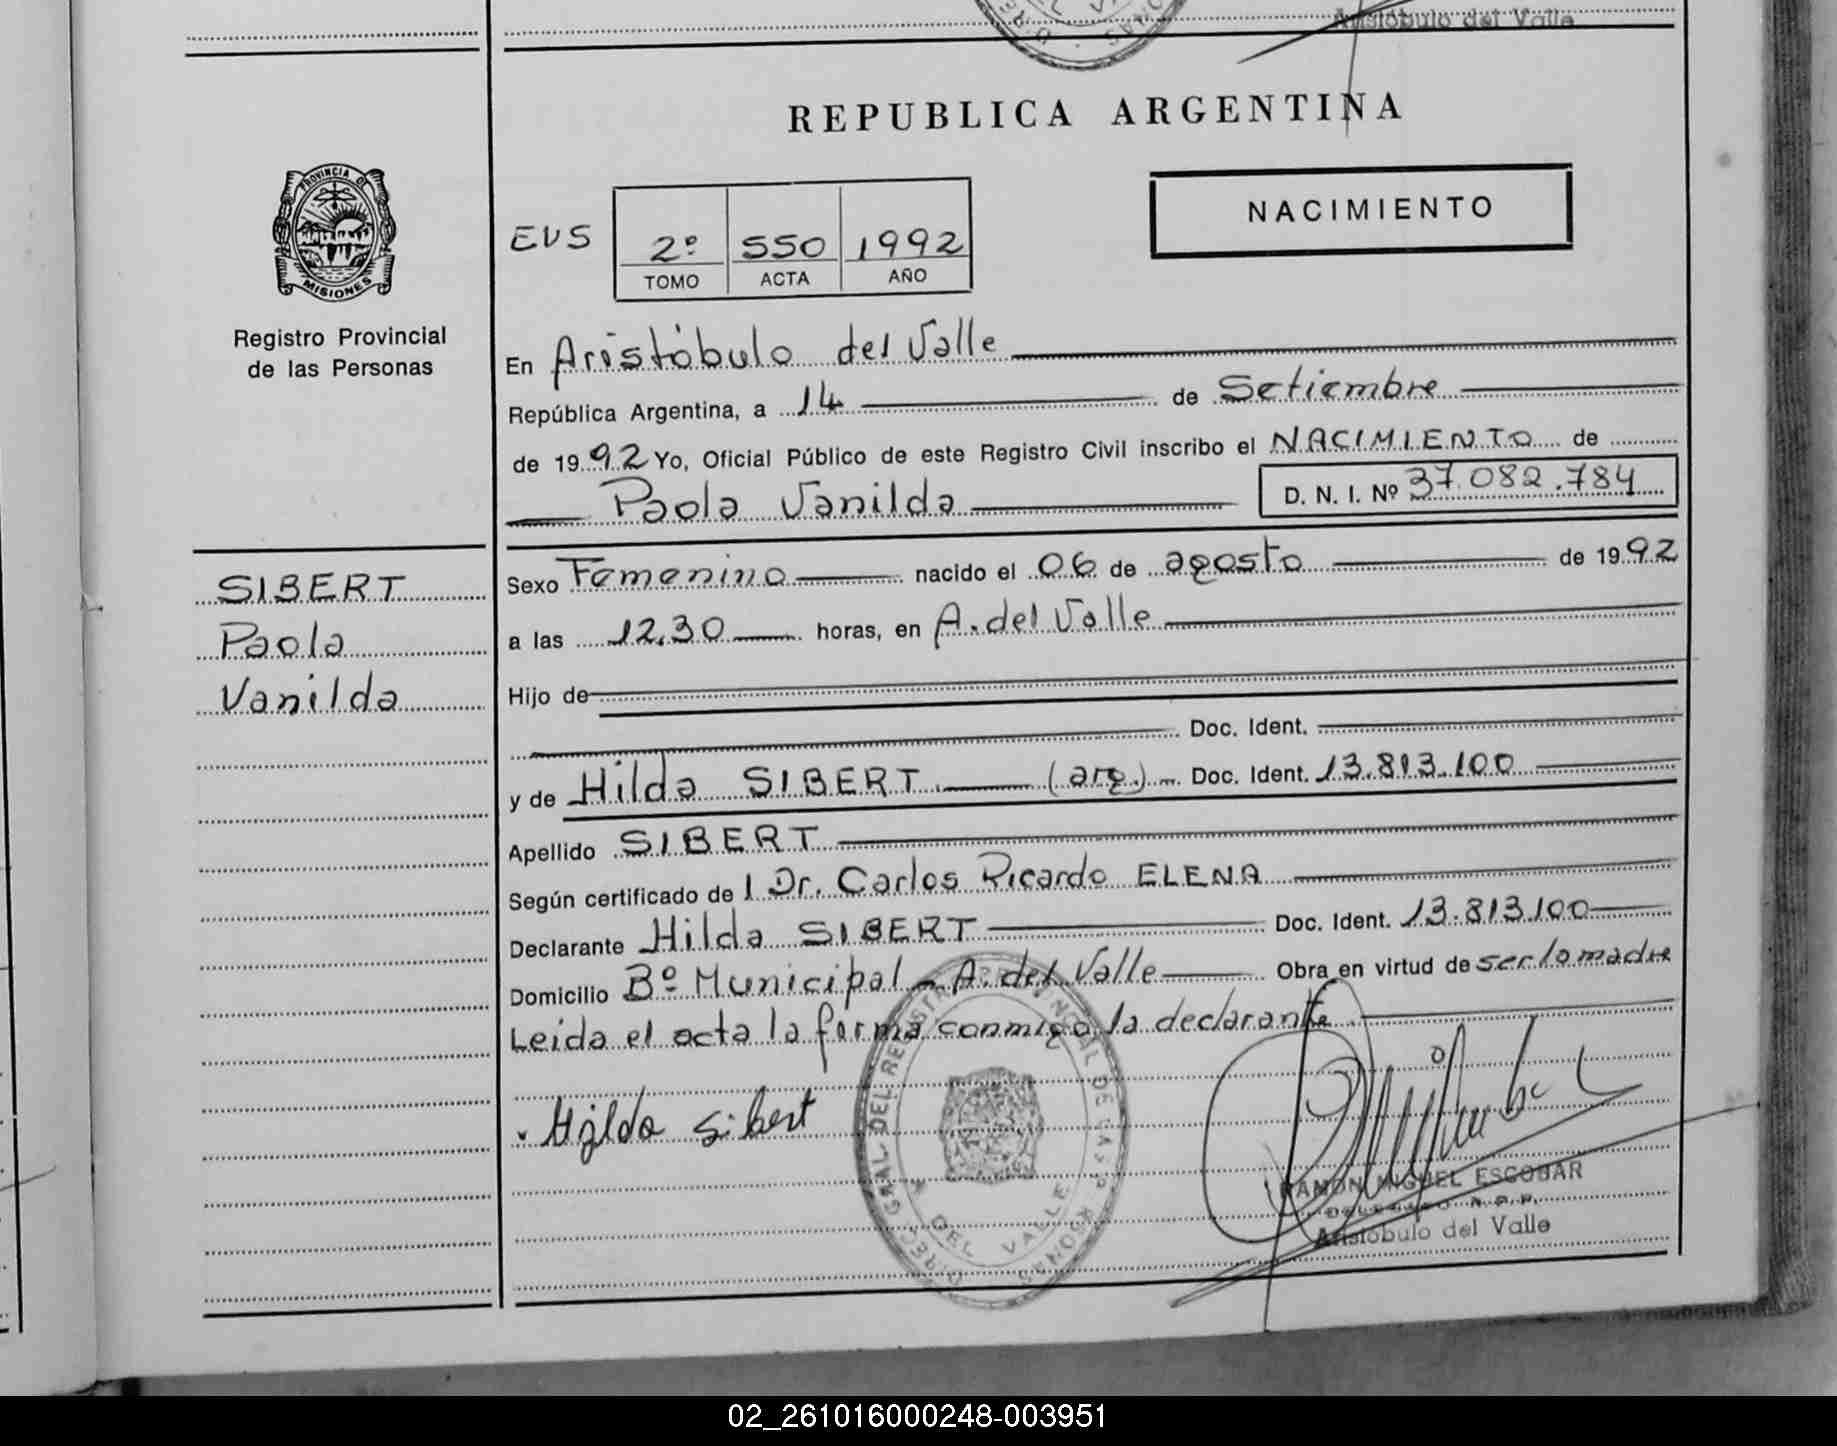 Aristóbulo del Valle
REPUBLICA ARGENTINA
PROVINCIA DE
MISIONES
Registro Provincial
de las Personas
NACIMIENTO
EVS
2º 550 1992
TOMO ACTA AÑO
En Aristóbulo del Valle
República Argentina, a 14 de Setiembre
de 1992 Yo, Oficial Público de este Registro Civil inscribo el NACIMIENTO de
Paola Vanilda D. N. I. Nº 37.082.784
SIBERT
Paola
Vanilda
Sexo Femenino nacido el 06 de agosto de 1992
a las 12,30 horas, en A. del Valle
Hijo de
Doc. Ident.
y de Hilda SIBERT (arg.) Doc. Ident. 13.813.100
Apellido SIBERT
Según certificado de l Dr. Carlos Ricardo ELENA
Declarante Hilda SIBERT Doc. Ident. 13.813.100
Domicilio Bº Municipal - A. del Valle Obra en virtud de ser la madre
Leida el acta la forma conmigo la declarante
Hilda Sibert
DEL VALLE
RAMON MIGUEL ESCOBAR
Aristóbulo del Valle
02_261016000248-003951